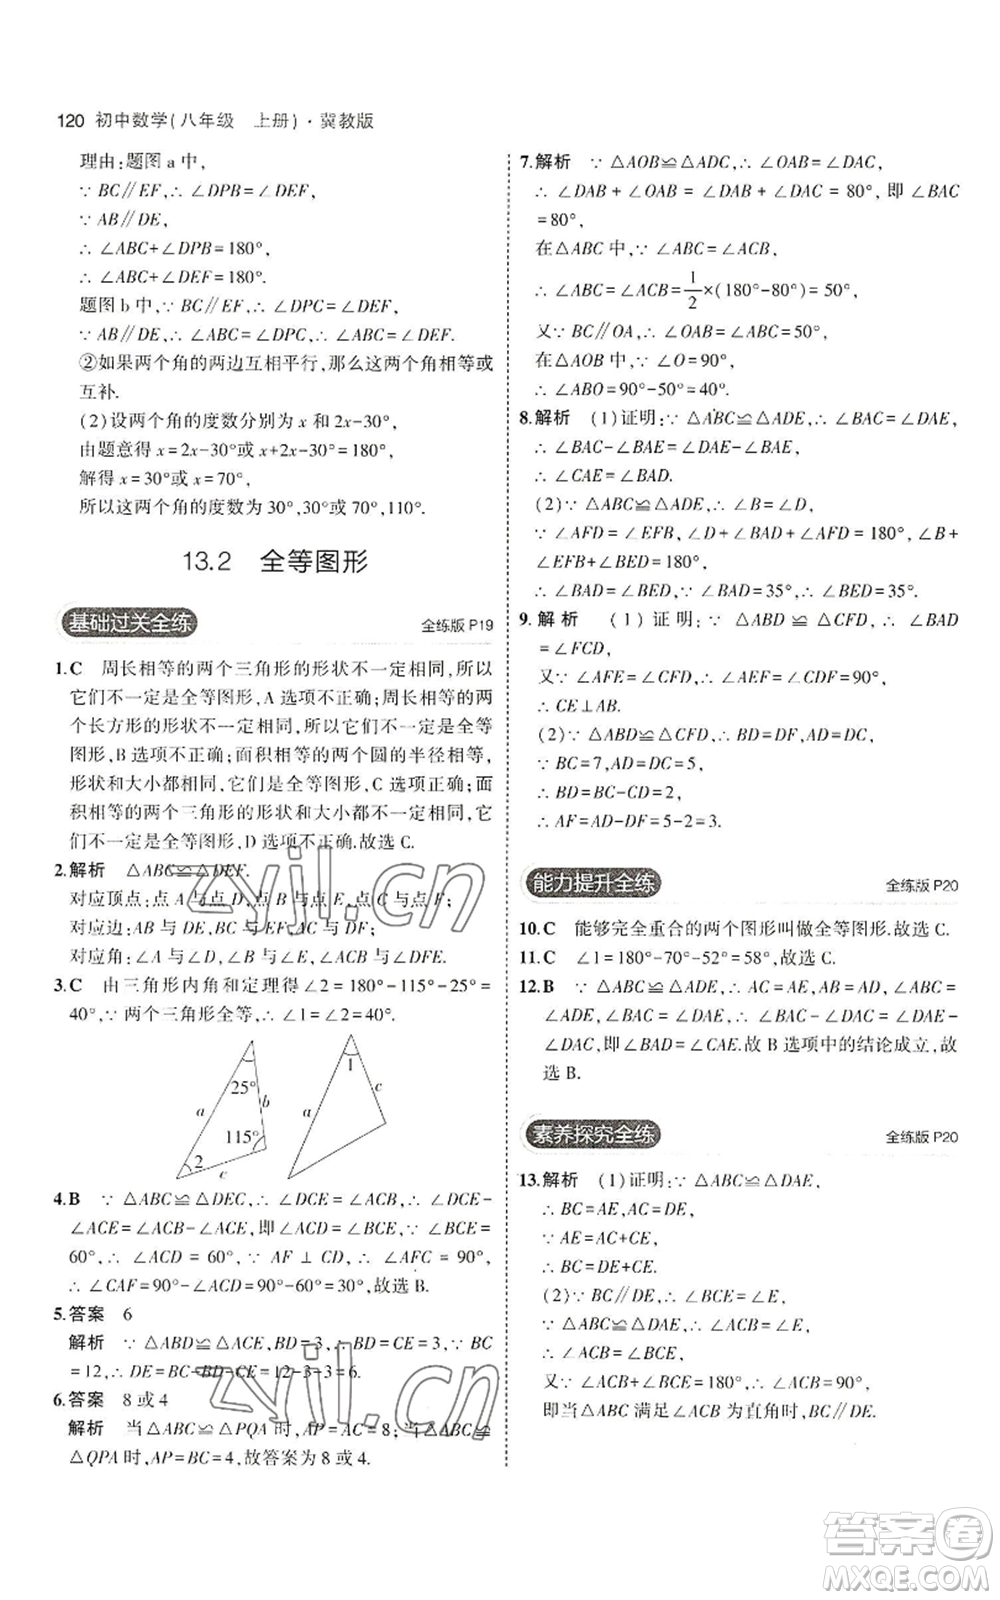 120 初中数学(八年级 上册)·冀教版
理由:题图 a 中,
∵ BC∥EF,∴ ∠DPB=∠DEF,
∵ AB∥DE,
∴ ∠ABC+∠DPB=180°,
∴ ∠ABC+∠DEF=180°.
题图 b 中,∵ BC∥EF,∴ ∠DPC=∠DEF,
∵ AB∥DE,∴ ∠ABC=∠DPC,∴ ∠ABC=∠DEF.
②如果两个角的两边互相平行,那么这两个角相等或
互补.
(2)设两个角的度数分别为 x 和 2x-30°,
由题意得 x=2x-30°或 x+2x-30°=180°,
解得 x=30°或 x=70°,
所以这两个角的度数为 30°,30°或 70°,110°.
13.2 全等图形
基础过关全练 全练版 P19
1.C 周长相等的两个三角形的形状不一定相同,所以
它们不一定是全等图形,A 选项不正确;周长相等的两
个长方形的形状不一定相同,所以它们不一定是全等
图形,B 选项不正确;面积相等的两个圆的半径相等,
形状和大小都相同,它们是全等图形,C 选项正确;面
积相等的两个三角形的形状和大小不一定相同,它们
不一定是全等图形,D 选项不正确.故选 C.
2.解析 △ABC≌△DEF.
对应顶点:点 A 与点 D,点 B 与点 E,点 C 与点 F;
对应边:AB 与 DE,AC 与 DF,BC 与 EF;
对应角:∠A 与∠D,∠B 与∠E,∠C 与∠DFE.
3.C 由三角形内角和定理得∠2=180°-115°-25°=
40°,∵ 两个三角形全等,∴ ∠1=∠2=40°.
25°
115°
2
a
b
c
1
a
c
4.B ∵ △ABC≌△DEC,∴ ∠DCE=∠ACB,∴ ∠DCE-
∠ACE=∠ACB-∠ACE,即∠ACD=∠BCE,∵ ∠BCE=
60°,∴ ∠ACD = 60°,∵ AF ⊥ CD,∴ ∠AFC = 90°,
∴ ∠CAF=90°-∠ACD=90°-60°=30°,故选 B.
5.答案 6
解析 ∵ △ABD≌△ACE,BD=3,∴ BD=CE=3,∵ BC
=12,∴ DE=BC-BD-CE=12-3-3=6.
6.答案 8 或 4
解析 当△ABC≌△PQA 时,AP=AC=8;当△ABC≌
△QPA 时,AP=BC=4,故答案为 8 或 4.
7.解析 ∵ △AOB≌△ADC,∴ ∠OAB=∠DAC,
∴ ∠DAB + ∠OAB = ∠DAB + ∠DAC = 80°,即 ∠BAC
=80°,
在△ABC 中,∵ ∠ABC=∠ACB,
∴ ∠ABC=∠ACB=1/2×(180°-80°)=50°,
又∵ BC∥OA,∴ ∠OAB=∠ABC=50°,
在△AOB 中,∵ ∠O=90°,
∴ ∠ABO=90°-50°=40°.
8.解析 (1)证明:∵ △ABC≌△ADE,∴ ∠BAC=∠DAE,
∴ ∠BAC-∠BAE=∠DAE-∠BAE,
∴ ∠CAE=∠BAD.
(2)∵ △ABC≌△ADE,∴ ∠B=∠D,
∵ ∠AFD=∠EFB,∠D+∠BAD+∠AFD=180°,∠B+
∠EFB+∠BED=180°,
∴ ∠BAD=∠BED,∵ ∠BAD=35°,∴ ∠BED=35°.
9.解析 (1)证明:∵ △ABD ≌ △CFD,∴ ∠BAD
=∠FCD,
又∵ ∠AFE=∠CFD,∴ ∠AEF=∠CDF=90°,
∴ CE⊥AB.
(2)∵ △ABD≌△CFD,∴ BD=DF,AD=DC,
∵ BC=7,AD=DC=5,
∴ BD=BC-CD=2,
∴ AF=AD-DF=5-2=3.
能力提升全练 全练版 P20
10.C 能够完全重合的两个图形叫做全等图形.故选 C.
11.C ∠1=180°-70°-52°=58°,故选 C.
12.B ∵ △ABC≌△AED,∴ AC=AE,AB=AD,∠ABC=
∠ADE,∠BAC = ∠DAE,∴ ∠BAC - ∠DAC = ∠DAE -
∠DAC,即∠BAD=∠CAE.故 B 选项中的结论成立,故
选 B.
素养探究全练 全练版 P20
13.解析 (1)证明:∵ △ABC≌△DAE,
∴ BC=AE,AC=DE,
∵ AE=AC+CE,
∴ BC=DE+CE.
(2)∵ BC∥DE,∴ ∠BCE=∠E,
∵ △ABC≌△DAE,∴ ∠ACB=∠E,
∴ ∠ACB=∠BCE,
又∵ ∠ACB+∠BCE=180°,∴ ∠ACB=90°,
即当△ABC 满足∠ACB 为直角时,BC∥DE.
zyjl.cn
zyjl.cn
答案卷
MXQE.COM